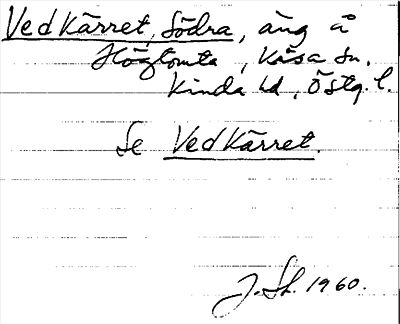 Vedkärret, Södra, äng å
Högtomta, Kisa sn.
Kinda hd, Östg. l.
Se Vedkärret.
J. Sh. 1960.